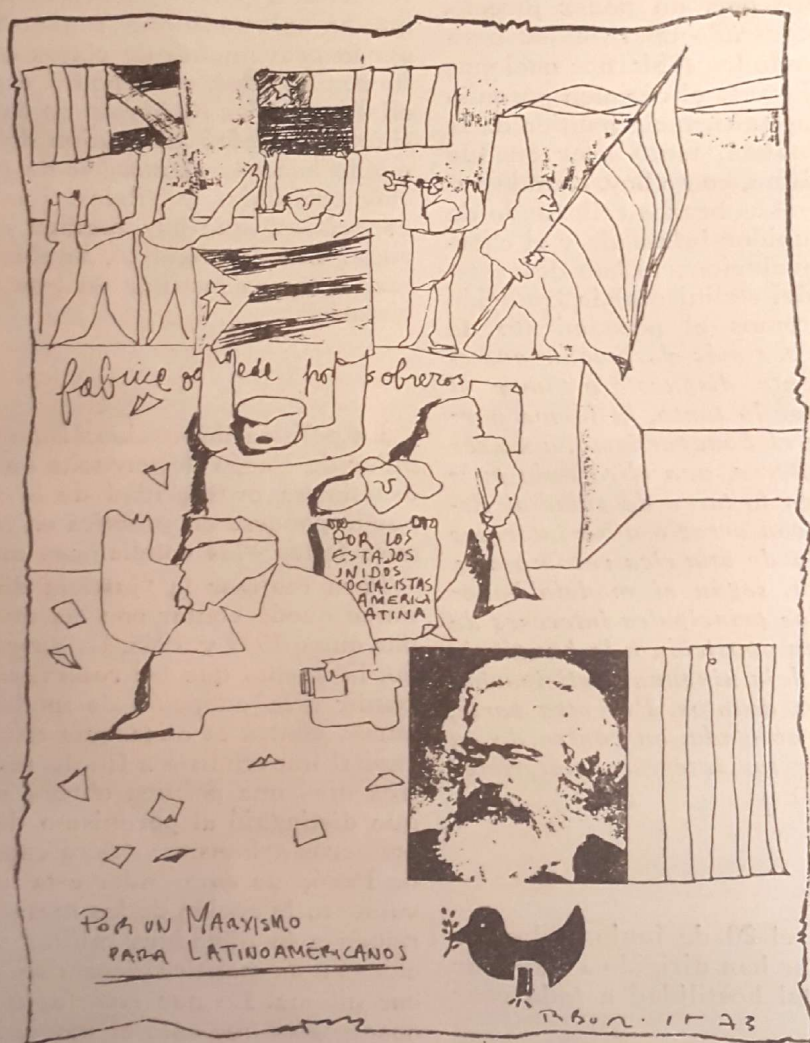 fabrica obreros
POR LOS
ESTADOS
UNIDOS
SOCIALISTAS
AMERICA
ATINA
POR UN MARXISMO
PARA LATINOAMERICANOS
73